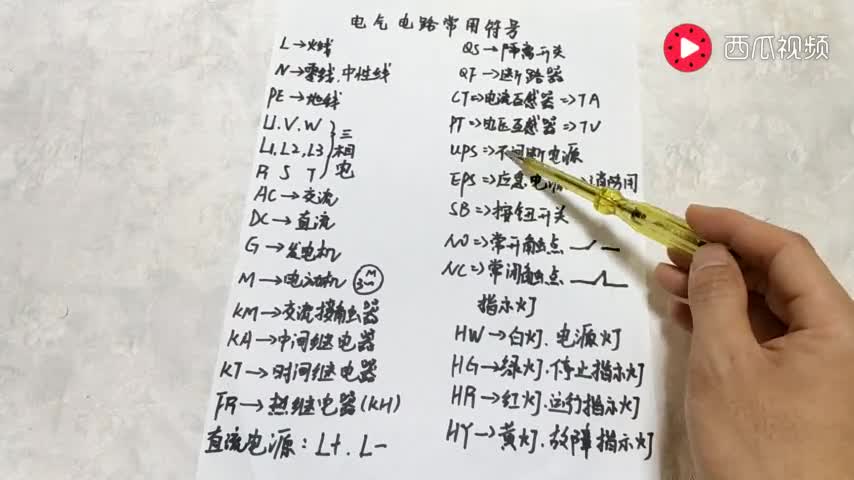 电气电路常用符号
L→火线
N→零线,中性线
PE→地线
U.V.W
L1,L2,L3
R S T
三相电
AC→交流
DC→直流
G→发电机
M→电动机 M 3~
KM→交流接触器
KA→中间继电器
KT→时间继电器
FR→热继电器(KH)
直流电源:L+.L-
QS→隔离开关
QF→断路器
CT⇒电流互感器⇒TA
PT⇒电压互感器⇒TV
UPS⇒不间断电源
EPS⇒应急电源⇒消防用
SB⇒按钮开关
NO⇒常开触点
NC⇒常闭触点
指示灯
HW→白灯.电源灯
HG→绿灯.停止指示灯
HR→红灯.运行指示灯
HY→黄灯.故障指示灯
西瓜视频